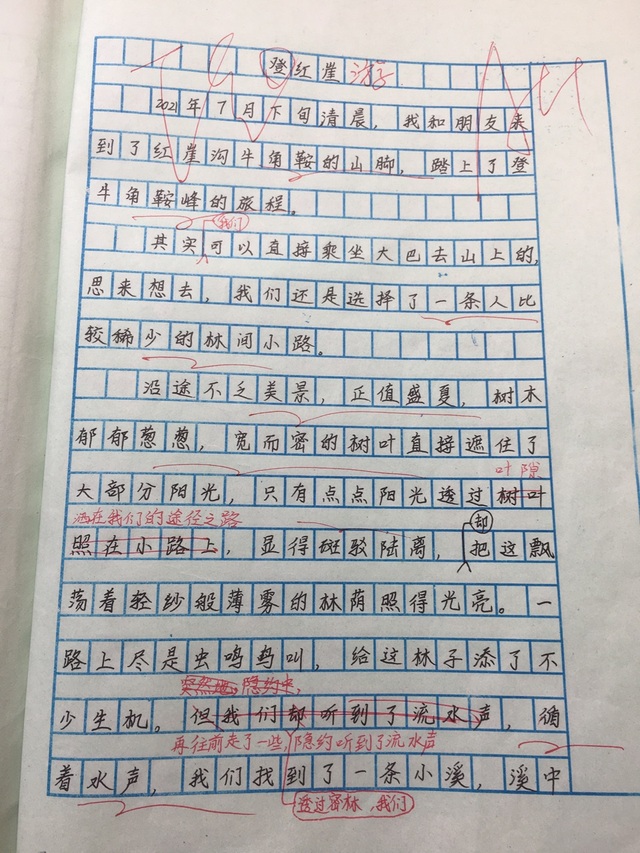 登红崖 游
2021年7月下旬清晨，我和朋友来
到了红崖沟牛角鞍的山脚，踏上了登
牛角鞍峰的旅程。
我们
其实可以直接乘坐大巴去山上的，
思来想去，我们还是选择了一条人比
较稀少的林间小路。
沿途不乏美景，正值盛夏，树木
郁郁葱葱，宽而密的树叶直接遮住了
叶隙
大部分阳光，只有点点阳光透过树叶
洒在我们的途径之路
却
照在小路上，显得斑驳陆离，把这飘
荡着轻纱般薄雾的林荫照得光亮。一
路上尽是虫鸣鸟叫，给这林子添了不
突然 隐约中，
少生机。但我们却听到了流水声，循
再往前走了一些 隐约听到了流水声
着水声，我们找到了一条小溪，溪中
透过密林，我们